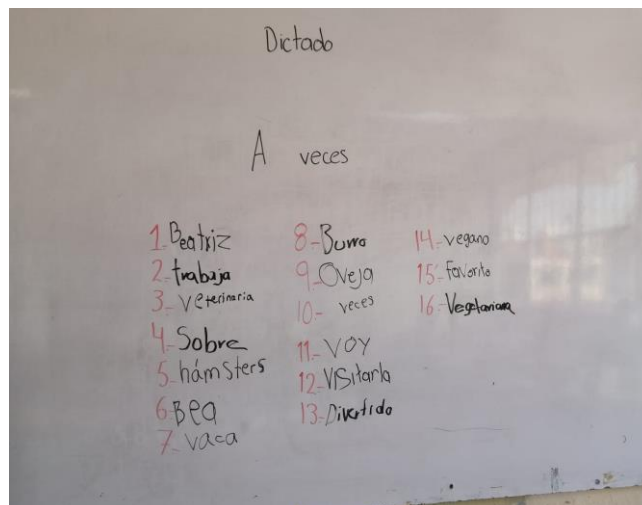 Dictado
A veces
1. Beatriz
2. trabaja
3. veterinaria
4. Sobre
5. hámsters
6. Bea
7. vaca
8. Burro
9. Oveja
10. veces
11. VOY
12. VISitarla
13. Divertido
14. vegano
15. favorito
16. Vegetariana